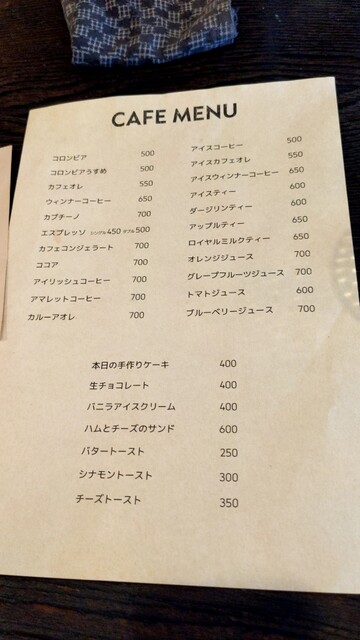 CAFE MENU
コロンビア 500
コロンビアうすめ 500
カフェオレ 550
ウィンナーコーヒー 650
カプチーノ 700
エスプレッソ シングル450 ダブル500
カフェコンジェラート 700
ココア 700
アイリッシュコーヒー 700
アマレットコーヒー 700
カルーアオレ 700
アイスコーヒー 500
アイスカフェオレ 550
アイスウィンナーコーヒー 650
アイスティー 600
ダージリンティー 600
アップルティー 650
ロイヤルミルクティー 650
オレンジジュース 700
グレープフルーツジュース 700
トマトジュース 600
ブルーベリージュース 700
本日の手作りケーキ 400
生チョコレート 400
バニラアイスクリーム 400
ハムとチーズのサンド 600
バタートースト 250
シナモントースト 300
チーズトースト 350